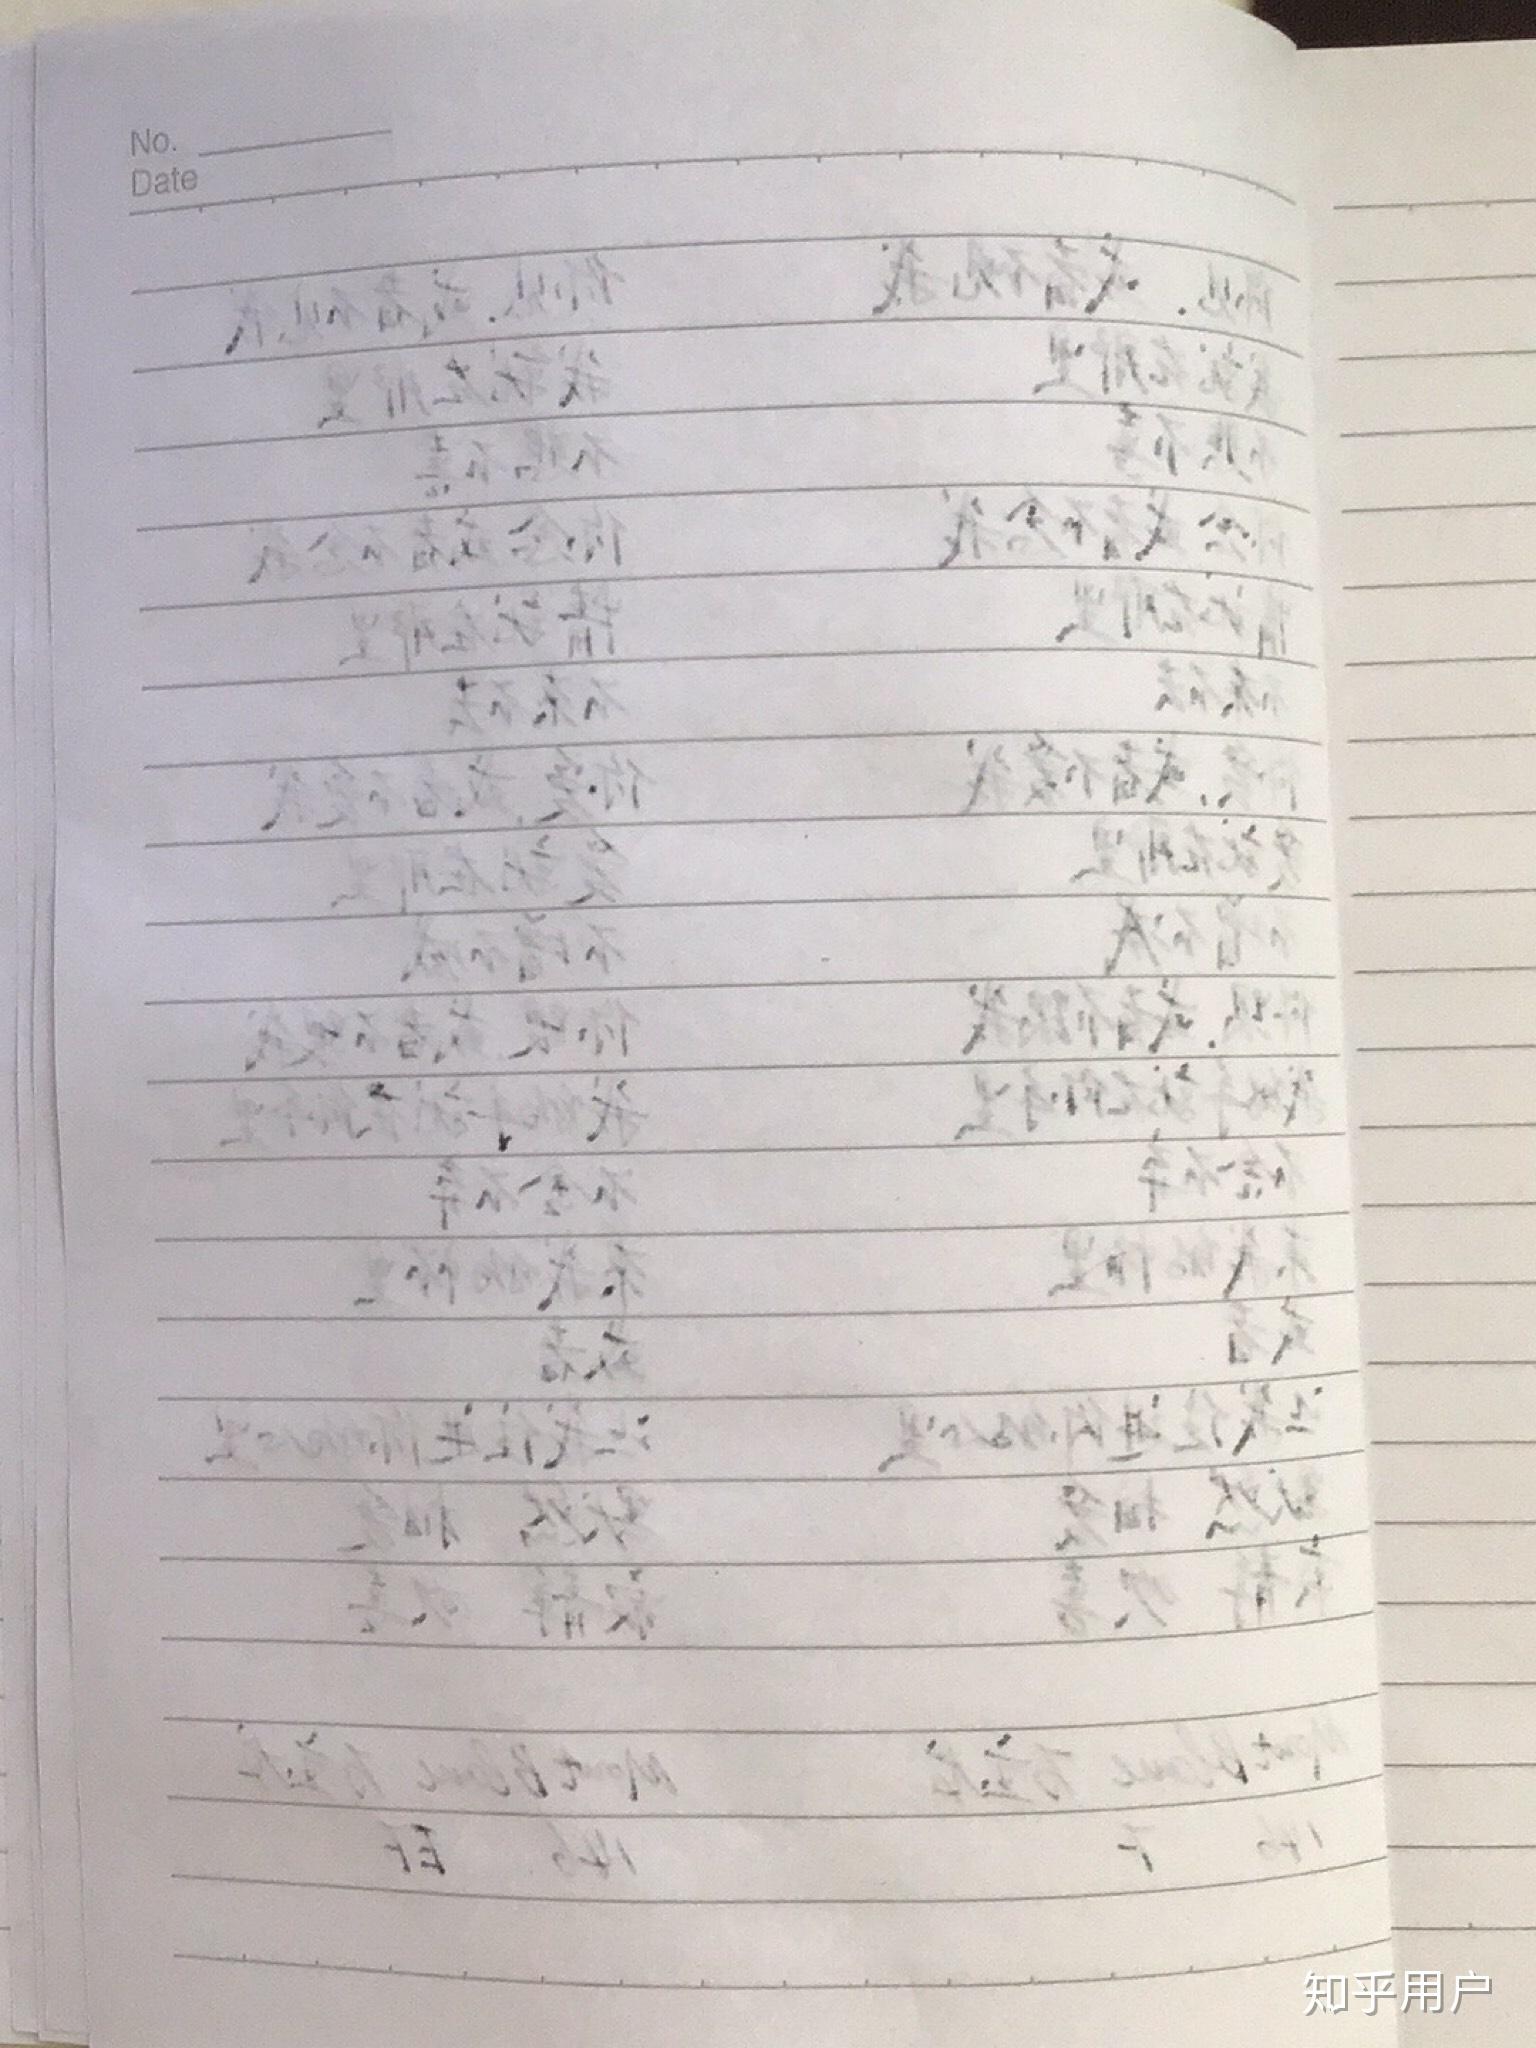 No.
Date
你见，或者不见我
我就在那里
不悲不喜
你念或者不念我
情就在那里
不来不去
你爱，或者不爱我
爱就在那里
不增不减
你跟，或者不跟我
我的手就在你手里
不舍不弃
来我的怀里
或者
让我住进你的心里
默然 相爱
寂静 欢喜
MontBlanc 万宝龙
146 F
你见，或者不见我
我就在那里
不悲不喜
你念或者不念我
情就在那里
不来不去
你爱，或者不爱我
爱就在那里
不增不减
你跟，或者不跟我
我的手就在你手里
不舍不弃
来我的怀里
或者
让我住进你的心里
默然 相爱
寂静 欢喜
MontBlanc 万宝龙
146 EF
知乎用户